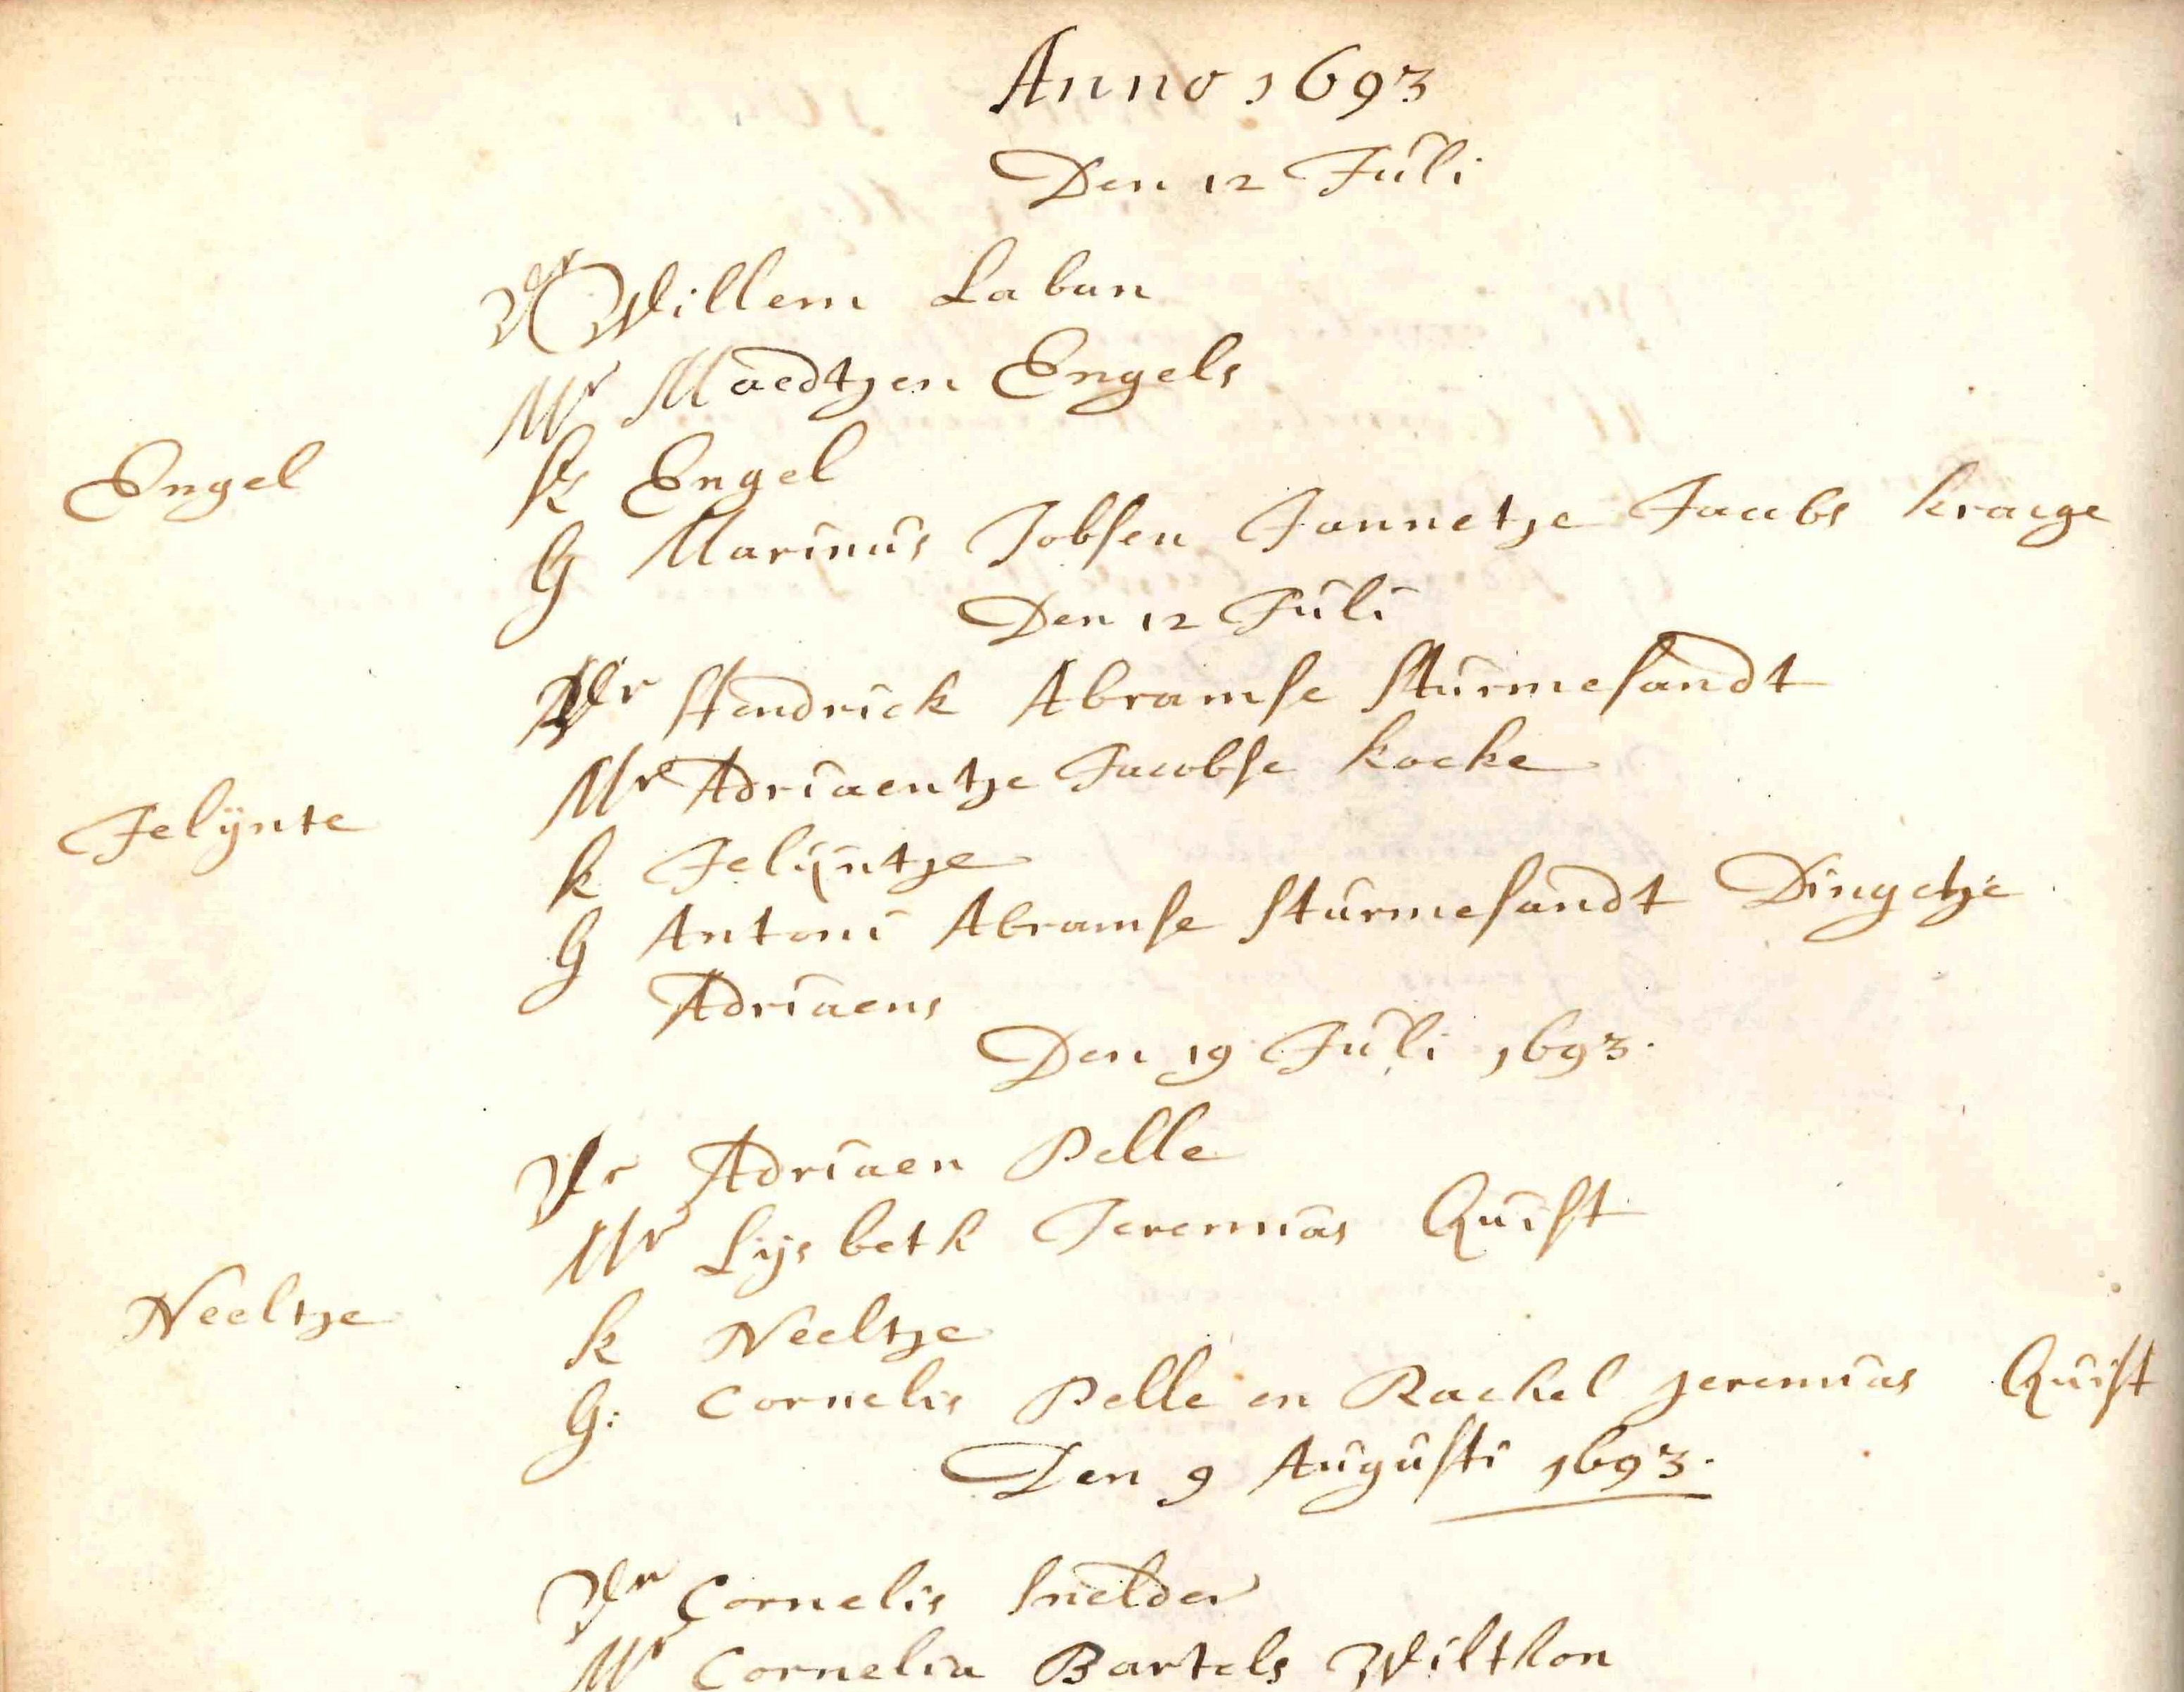 Anno 1693
Den 12 Juli
Vr Willem Laban
Mr Maedtjen Engels
Engel
K Engel
G Marinus Jobsen Jannetje Jacobs kraige
Den 12 Juli
Vr Hendrick Abramse Sturmesandt
Mr Adriaentje Jacobse Kocke
Jelijnte
k Jelijntje
G Antoni Abramse Sturmesandt Dingetje
Adriaens
Den 19 Juli 1693.
Vr Adriaen Pelle
Mr Lijsbeth Jeremias Quist
Neeltje
k Neeltje
G: Cornelis Pelle en Rachel Jeremias Quist
Den 9 Augusti 1693.
Vr Cornelis Snelder
Mr Cornelia Bartels